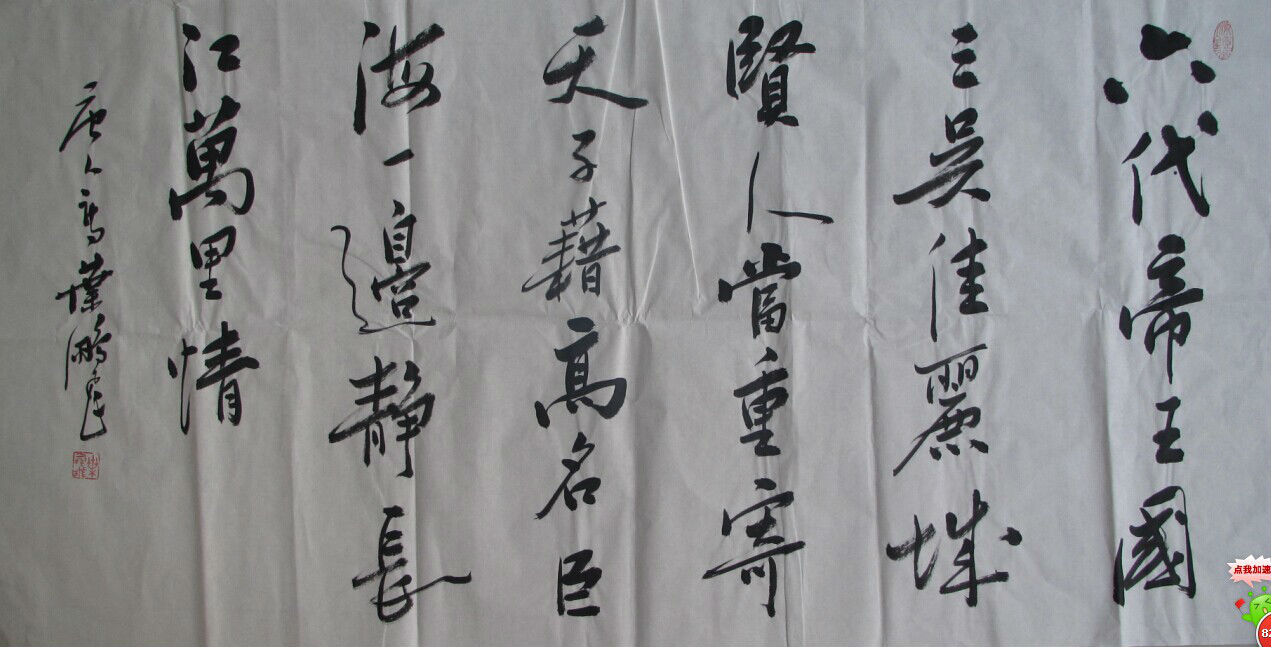 六代帝王國
三吳佳麗城
賢人當重寄
天子藉高名臣
海一邊靜長
江萬里情
唐人 葉鵬
点我加速